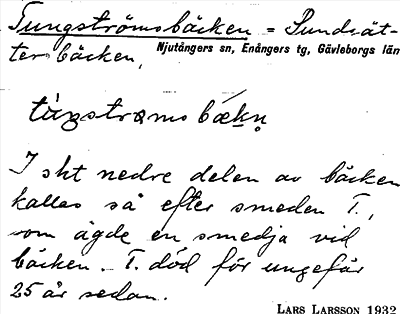 Tungströmsbäcken = Sundsät-
tersbäcken,
Njutångers sn, Enångers tg, Gävleborgs län
I sht nedre delen av bäcken
kallas så efter smeden T.,
som ägde en smedja vid
bäcken. T. död för ungefär
25 år sedan.
LARS LARSSON 1932